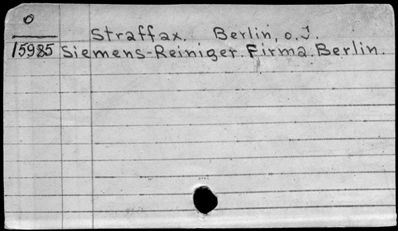 O
Straffax. Berlin, o.J.
15985 Siemens-Reiniger. Firma. Berlin.